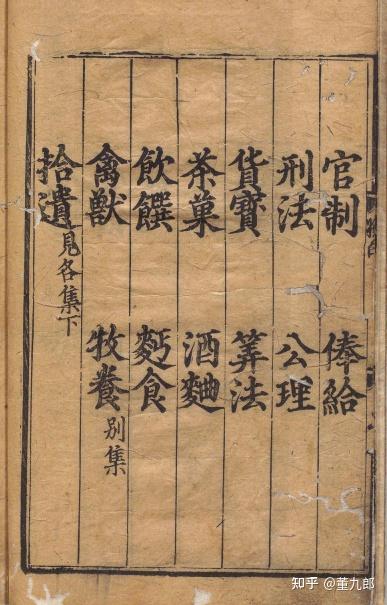 官制 俸給
刑法 公理
貨寶 筭法
茶菓 酒麯
飲饌 麪食
禽獸 牧養 别集
拾遺 見各集下
知乎 @董九郎